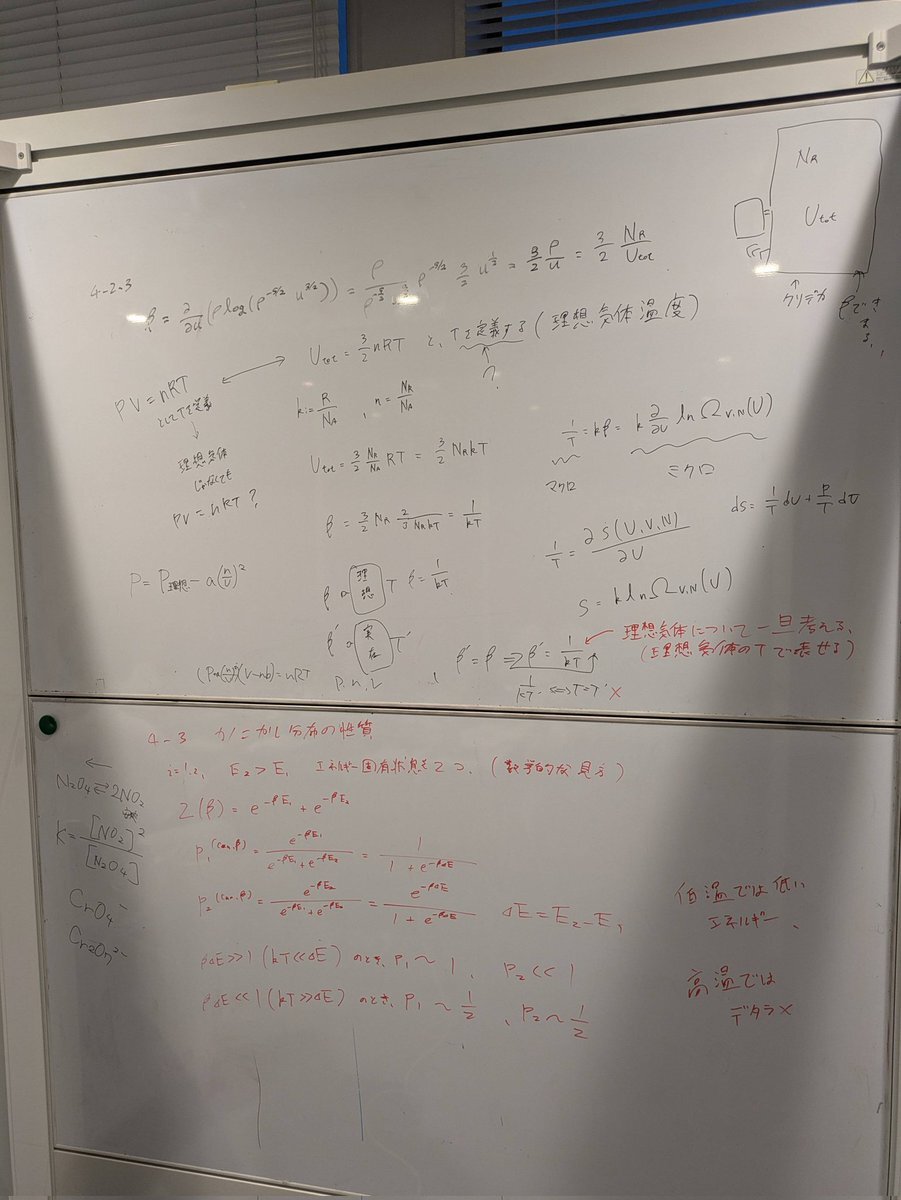 N_R
U_tot
クリデカ
βできまる,,
4-2-3
β = ∂/∂u (ρ log(ρ^{-5/2} u^{3/2})) = ρ^{-3/2} 3/2 u^{1/2} = 3/2 ρ/u = 3/2 N_R/U_tot
U_tot = 3/2 nRT と、Tを定義する(理想気体温度)
?
PV = nRT
としてTを定義
理想気体
じゃなくても
PV = nRT ?
k := R/N_A , n = N_R/N_A
U_tot = 3/2 N_R/N_A RT = 3/2 N_R kT
β = 3/2 N_R 2/(3 N_R kT) = 1/kT
1/T = kβ = k ∂/∂U ln Ω_{V,N}(U)
マクロ
ミクロ
1/T = ∂S(U,V,N)/∂U
dS = 1/T dU + P/T dU
S = k ln Ω_{V,N}(U)
P = P理想 - a(n/V)^2
β 理想 T β = 1/kT
β' 実在 T'
P, n, V
β' = β ⇒ β' = 1/kT
理想気体について一旦考える、
(理想気体のTで表せる)
(V-nb) = nRT
4-3 カノニカル分布の性質
i=1,2, E_2 > E_1 エネルギー固有状態を2つ、(数学的な見方)
Z(β) = e^{-βE_1} + e^{-βE_2}
P_1^{(can,β)} = e^{-βE_1}/(e^{-βE_1}+e^{-βE_2}) = 1/(1+e^{-βΔE})
P_2^{(can,β)} = e^{-βE_2}/(e^{-βE_1}+e^{-βE_2}) = e^{-βΔE}/(1+e^{-βΔE}) ΔE = E_2 - E_1
βΔE ≫ 1 (kT ≪ ΔE) のとき、P_1 ~ 1、 P_2 ≪ 1
βΔE ≪ 1 (kT ≫ ΔE) のとき、P_1 ~ 1/2 、P_2 ~ 1/2
低温では低い
エネルギー、
高温では
デタラメ
←
N_2O_4 ⇌ 2NO_2
K = [NO_2]^2/[N_2O_4]
CrO_4^-